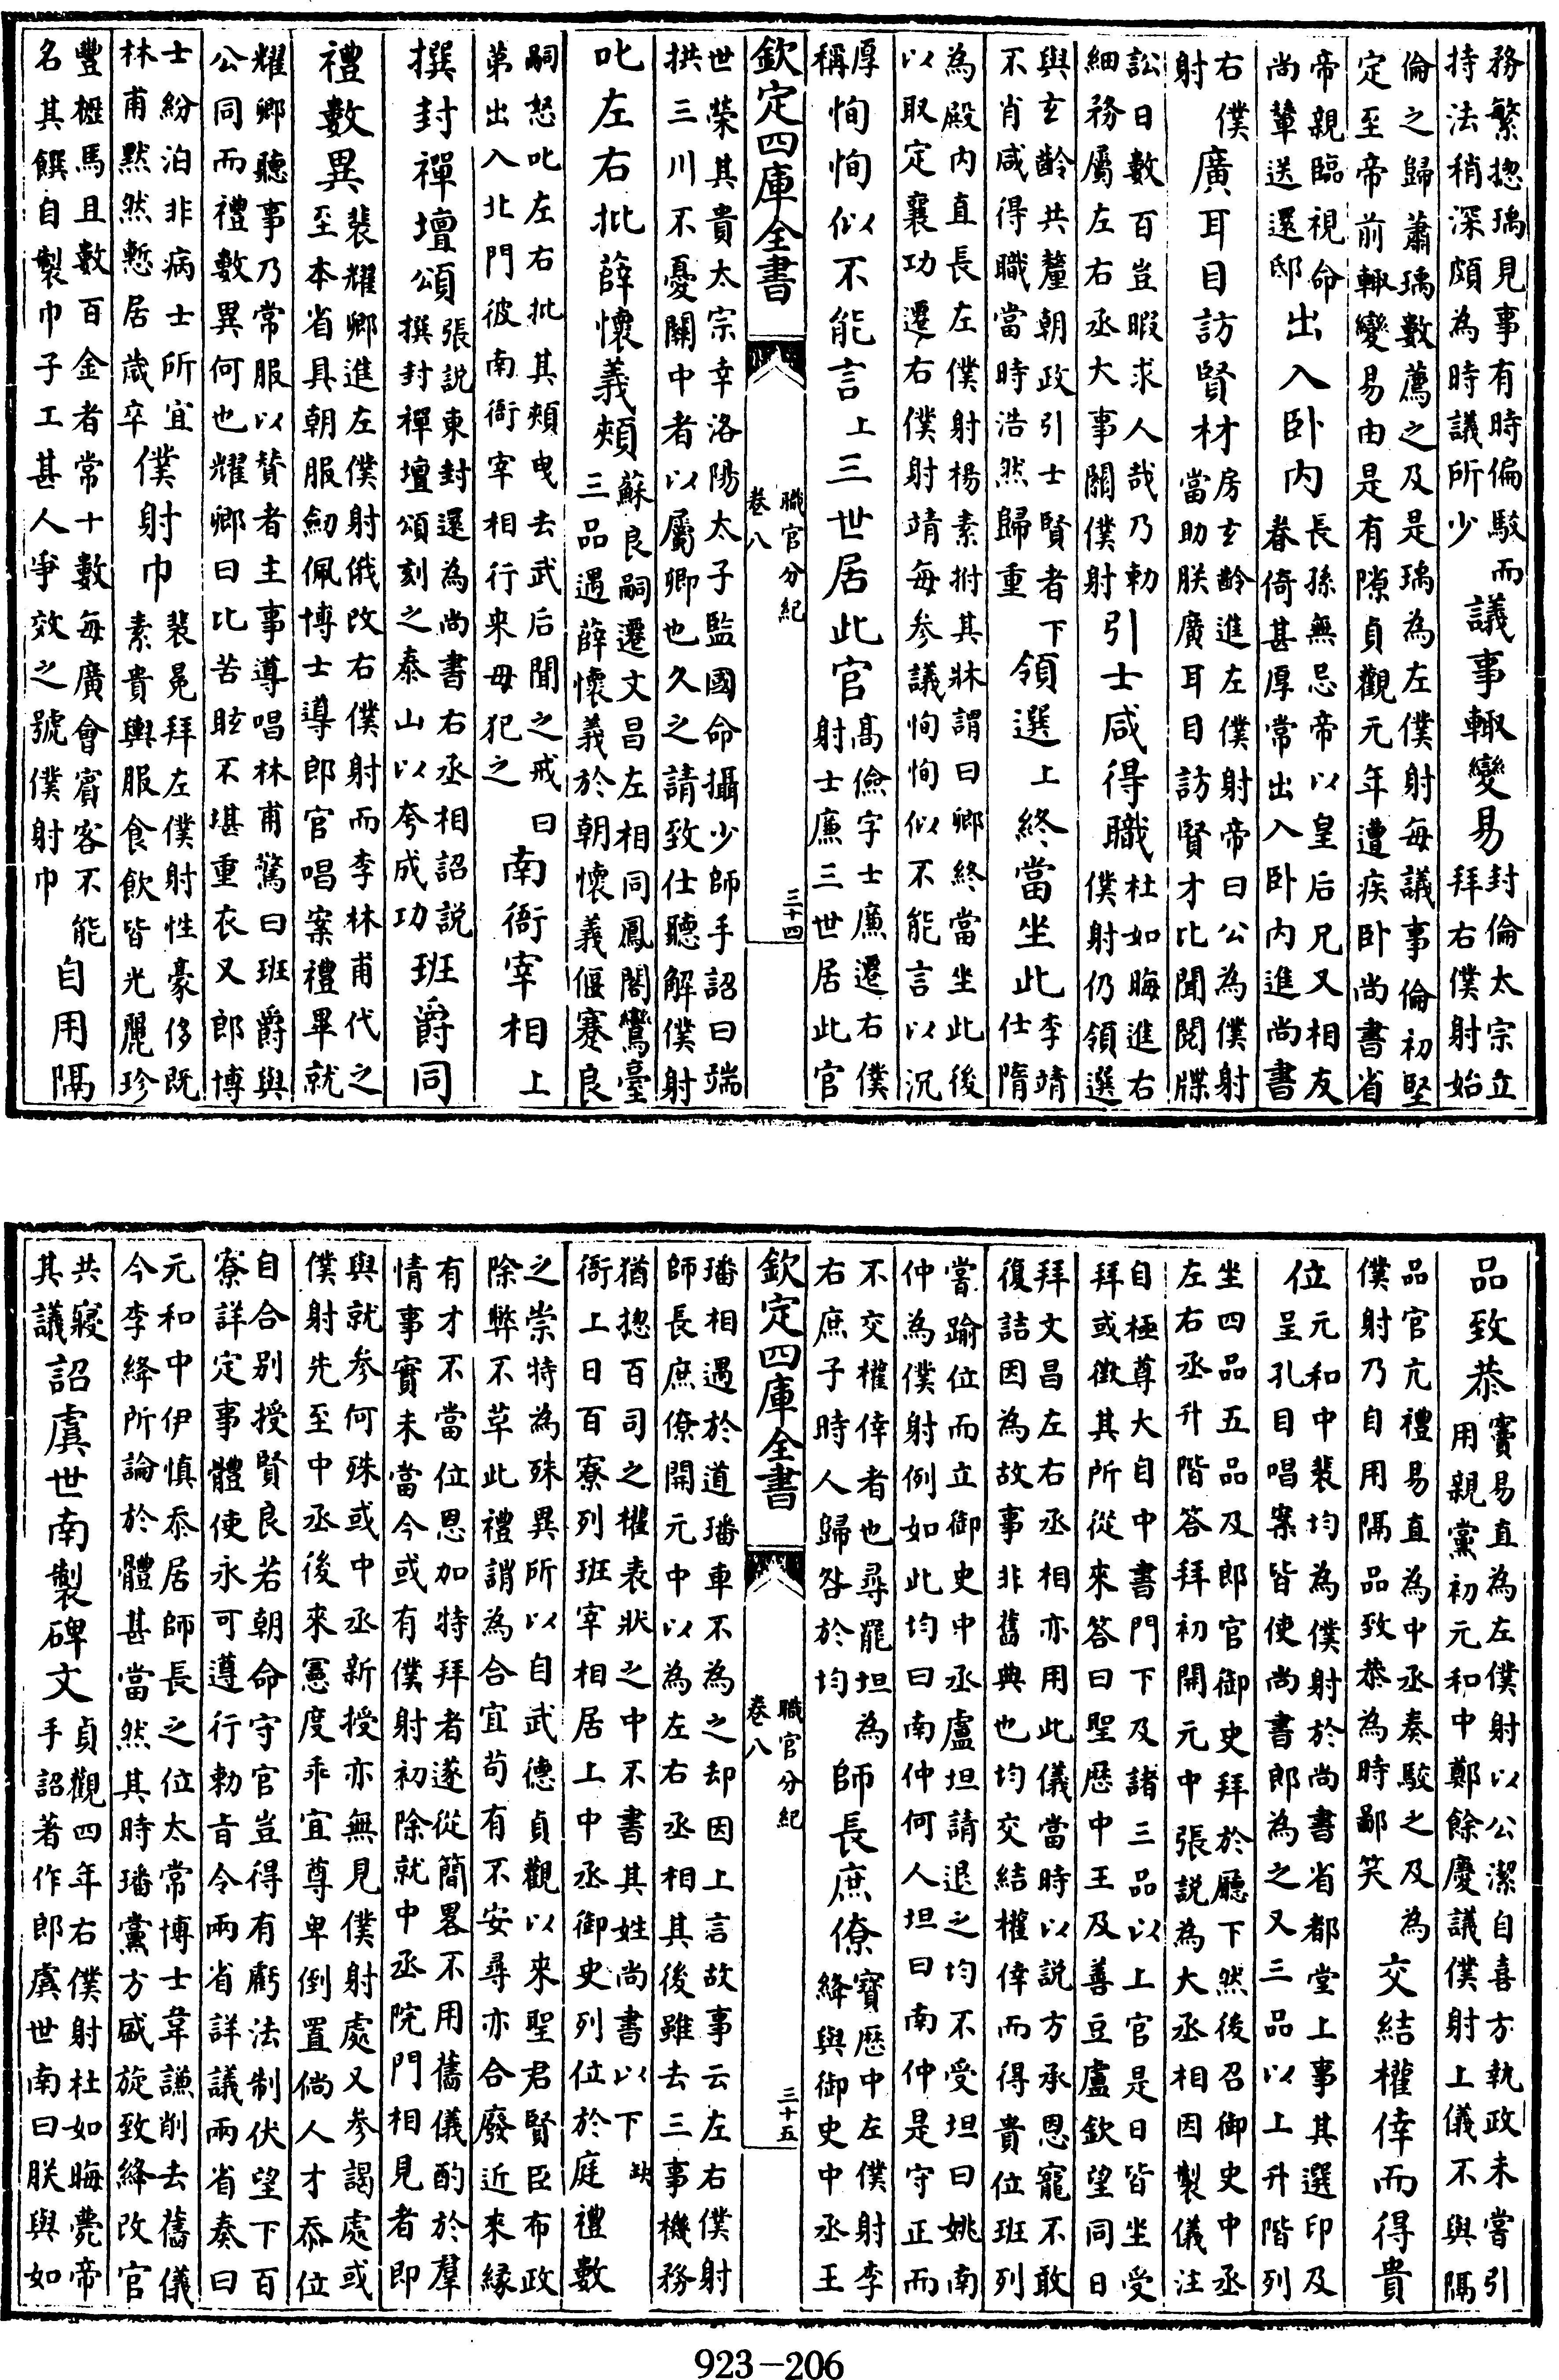 務繁揔瑀見事有時偏駮而
持法稍深頗為時議所少
議事輙變易
封倫太宗立
拜右僕射始
倫之歸蕭瑀數薦之及是瑀為左僕射每議事倫初堅
定至帝前輙變易由是有隙貞觀元年遭疾卧尚書省
帝親臨視命
尚輦送還邸
出入卧内
長孫無忌帝以皇后兄又相友
眷倚甚厚常出入卧内進尚書
右僕
射
廣耳目訪賢材
房玄齡進左僕射帝曰公為僕射
當助朕廣耳目訪賢才比聞閲牒
訟日數百豈暇求人哉乃勅
細務屬左右丞大事關僕射
引士咸得職
杜如晦進右
僕射仍領選
與玄齡共釐朝政引士賢者下
不肖咸得職當時浩然歸重
領選上
終當坐此
李靖
仕隋
為殿内直長左僕射楊素拊其牀謂曰卿終當坐此後
以取定襄功遷右僕射靖每參議恂恂似不能言以沉
厚
稱
恂恂似不能言上
三世居此官
高儉字士廉遷右僕
射士廉三世居此官
欽定四庫全書
職官分紀
卷八
三十四
世榮其貴太宗幸洛陽太子監國命攝少師手詔曰端
拱三川不憂關中者以屬卿也久之請致仕聽解僕射
叱左右批薛懷義頰
蘇良嗣遷文昌左相同鳳閣鸞臺
三品遇薛懷義於朝懷義偃蹇良
嗣怒叱左右批其頰曳去武后聞之戒曰
弟出入北門彼南衙宰相行来毋犯之
南衙宰相上
撰封禪壇頌
張說東封還為尚書右丞相詔說
撰封禪壇頌刻之泰山以夸成功
班爵同
禮數異
裴耀卿進左僕射俄改右僕射而李林甫代之
至本省具朝服劒佩博士導郎官唱案禮畢就
耀卿聽事乃常服以賛者主事導唱林甫驚曰班爵與
公同而禮數異何也耀卿曰比苦眩不堪重衣又郎博
士紛泊非病士所宜
林甫黙然慙居歳卒
僕射巾
裴冕拜左僕射性豪侈既
素貴輿服食飲皆光麗珍
豐櫪馬且數百金者常十數每廣會賓客不能
名其饌自製巾子工甚人爭效之號僕射巾
自用隔
品致恭
竇易直為左僕射以公潔自喜方執政未嘗引
用親黨初元和中鄭餘慶議僕射上儀不與隔
品官亢禮易直為中丞奏駮之及為
僕射乃自用隔品致恭為時鄙笑
交結權倖而得貴
位
元和中裴均為僕射於尚書省都堂上事其選印及
呈孔目唱案皆使尚書郎為之又三品以上升階列
坐四品五品及郎官御史拜於廳下然後召御史中丞
左右丞升階答拜初開元中張説為大丞相因製儀注
自極尊大自中書門下及諸三品以上官是日皆坐受
拜或徴其所從來答曰聖歴中王及善豆盧欽望同日
拜文昌左右丞相亦用此儀當時以説方承恩寵不敢
復詰因為故事非舊典也均交結權倖而得貴位班列
嘗踰位而立御史中丞盧坦請退之均不受坦曰姚南
仲為僕射例如此均曰南仲何人坦曰南仲是守正而
不交權倖者也尋罷坦為
右庶子時人歸咎於均
師長庶僚
寶歴中左僕射李
絳與御史中丞王
欽定四庫全書
職官分紀
卷八
三十五
璠相遇於道璠車不為之却因上言故事云左右僕射
師長庶僚開元中以為左右丞相其後雖去三事機務
猶揔百司之權表状之中不書其姓尚書以下缺
衙上日百寮列班宰相居上中丞御史列位於庭禮數
之崇特為殊異所以自武德貞觀以來聖君賢臣布政
除弊不革此禮謂為合宜苟有不安尋亦合廢近來縁
有才不當位恩加特拜者遂從簡畧不用舊儀酌於羣
情事實未當今或有僕射初除就中丞院門相見者即
與就参何殊或中丞新授亦無見僕射處又参謁處或
僕射先至中丞後來憲度乖宜尊卑倒置倘人才忝位
自合別授賢良若朝命守官豈得有虧法制伏望下百
寮詳定事體使永可遵行勅旨令兩省詳議兩省奏曰
元和中伊慎忝居師長之位太常博士韋謙削去舊儀
今李絳所論於體甚當然其時璠黨方盛旋致絳改官
共寢
其議
詔虞世南製碑文
貞觀四年右僕射杜如晦薨帝
手詔著作郎虞世南曰朕與如
923-206